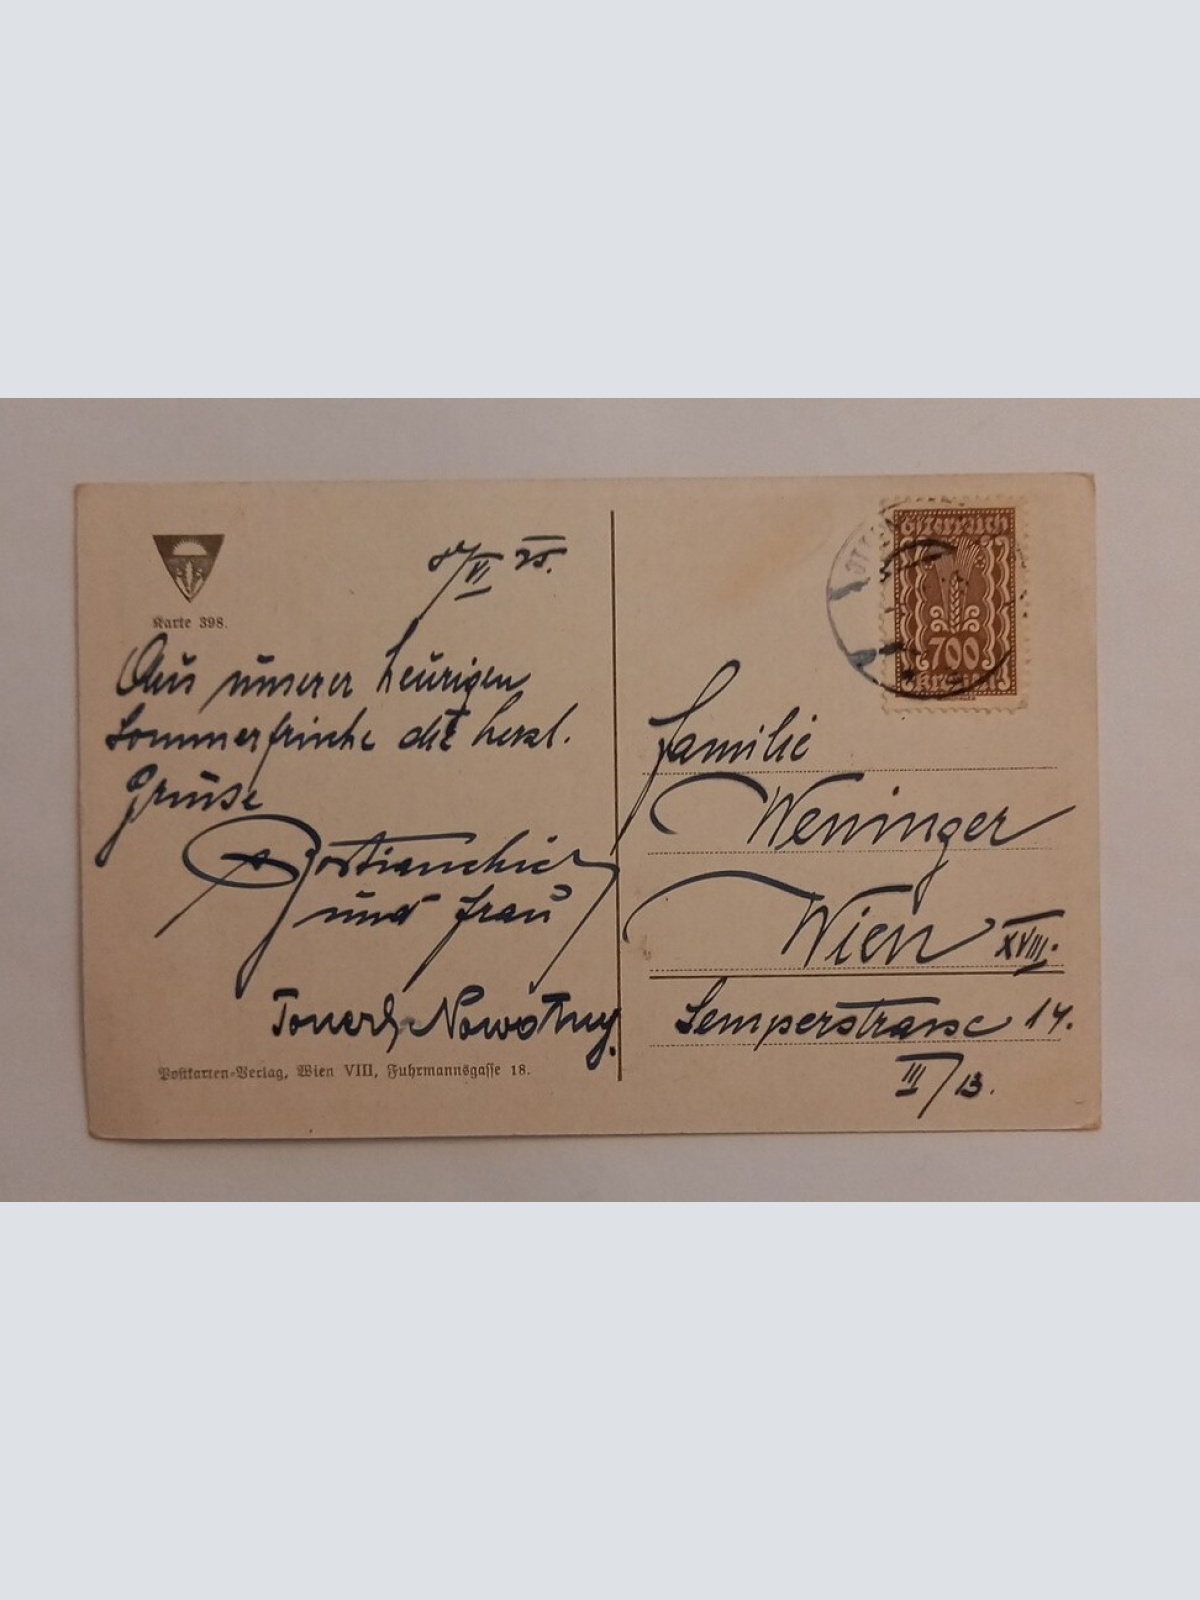 Karte 398.
VI 25.
Aus unserer heurigen
Sommerfrische die herzl.
Grüsse
und Frau
Nowotny
Postkarten-Verlag, Wien VIII, Fuhrmannsgasse 18.
Österreich
700
Kronen
Familie
Weninger
Wien XVIII.
Semperstrasse 14.
III/13.